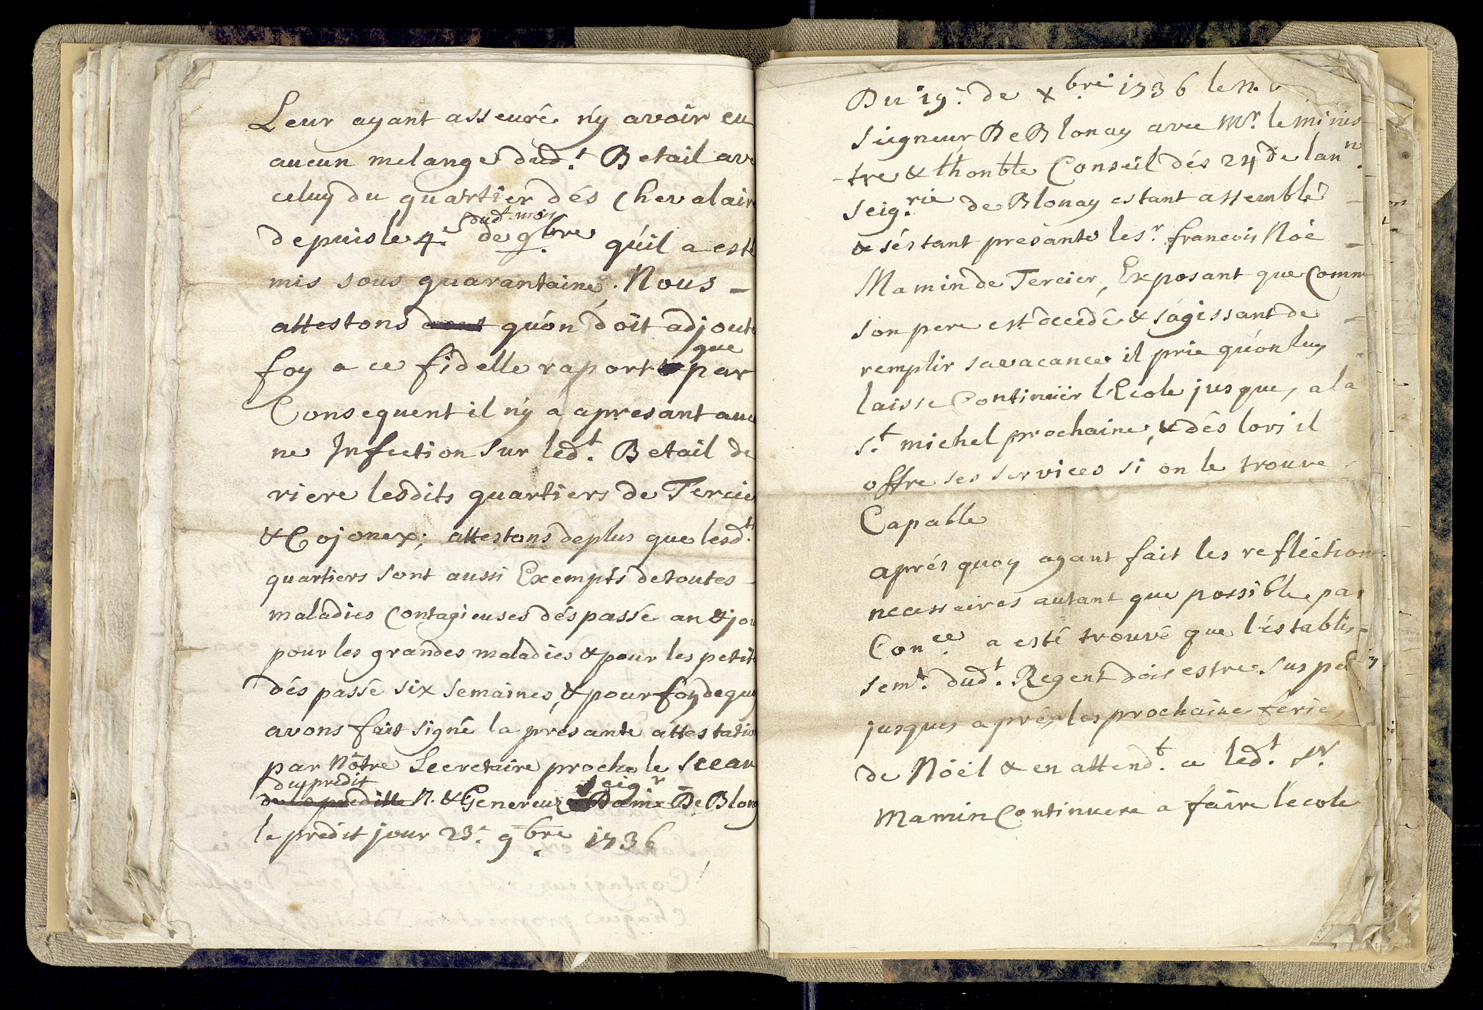 Leur ayant asseuré n'y avoir eu
aucun melange dud.t Betail av
celuy du quartier dés Chevalair
dud.t mois
depuis le 4.e de 9bre qu'il a esté
mis sous quarantaine, Nous –
attestons dont qu'on doit adjoute
que
foy a ce fidelle raport par
Consequent il n'y a apresant aucu
ne Infection sur led.t Betail de
riere lesdits quartiers de Tercier
& Cojonex; attestons deplus que lesd.ts
quartiers sont aussi Exempts de toutes –
maladies Contagieuses dés passé an & jou
pour les grandes maladies & pour les petite
dés passé six semaines, & pour foy de quoy
avons fait signé la presante attestatio
par Nôtre Secretaire proche le sceau
du predit Seig.r
de la preditte N. & Genereux De Blonay
le predit jour 23.e 9bre 1736
Du 19.e de Xbre 1736 le N.
Seigneur De Blonay avec Mr. le minis
-tre & l'honble Conseil dés 24 de lan.ne
Seig.rie de Blonay estant assemblé –
& s'éstant presanté le sr. francois Noé –
Mamin de Tercier, Exposant que Comm
son pere est decedé & s'agissant de –
remplir sa vacance il prie qu'on luy
laisse Continüer l'Ecole jusques a la
s.t michel prochaine, & dés lors il
offre ses services si on le trouve
Capable
aprés quoy ayant fait les refléction
necessaires autant que possible, par
Con.ce a esté trouvé que l'éstablis-
sem.t dud.t Regent dois estre suspe
jusques aprés les prochaine férie,
de Nöél & en attend.t ce led.t Sr.
Mamin Continuera a faire lecole